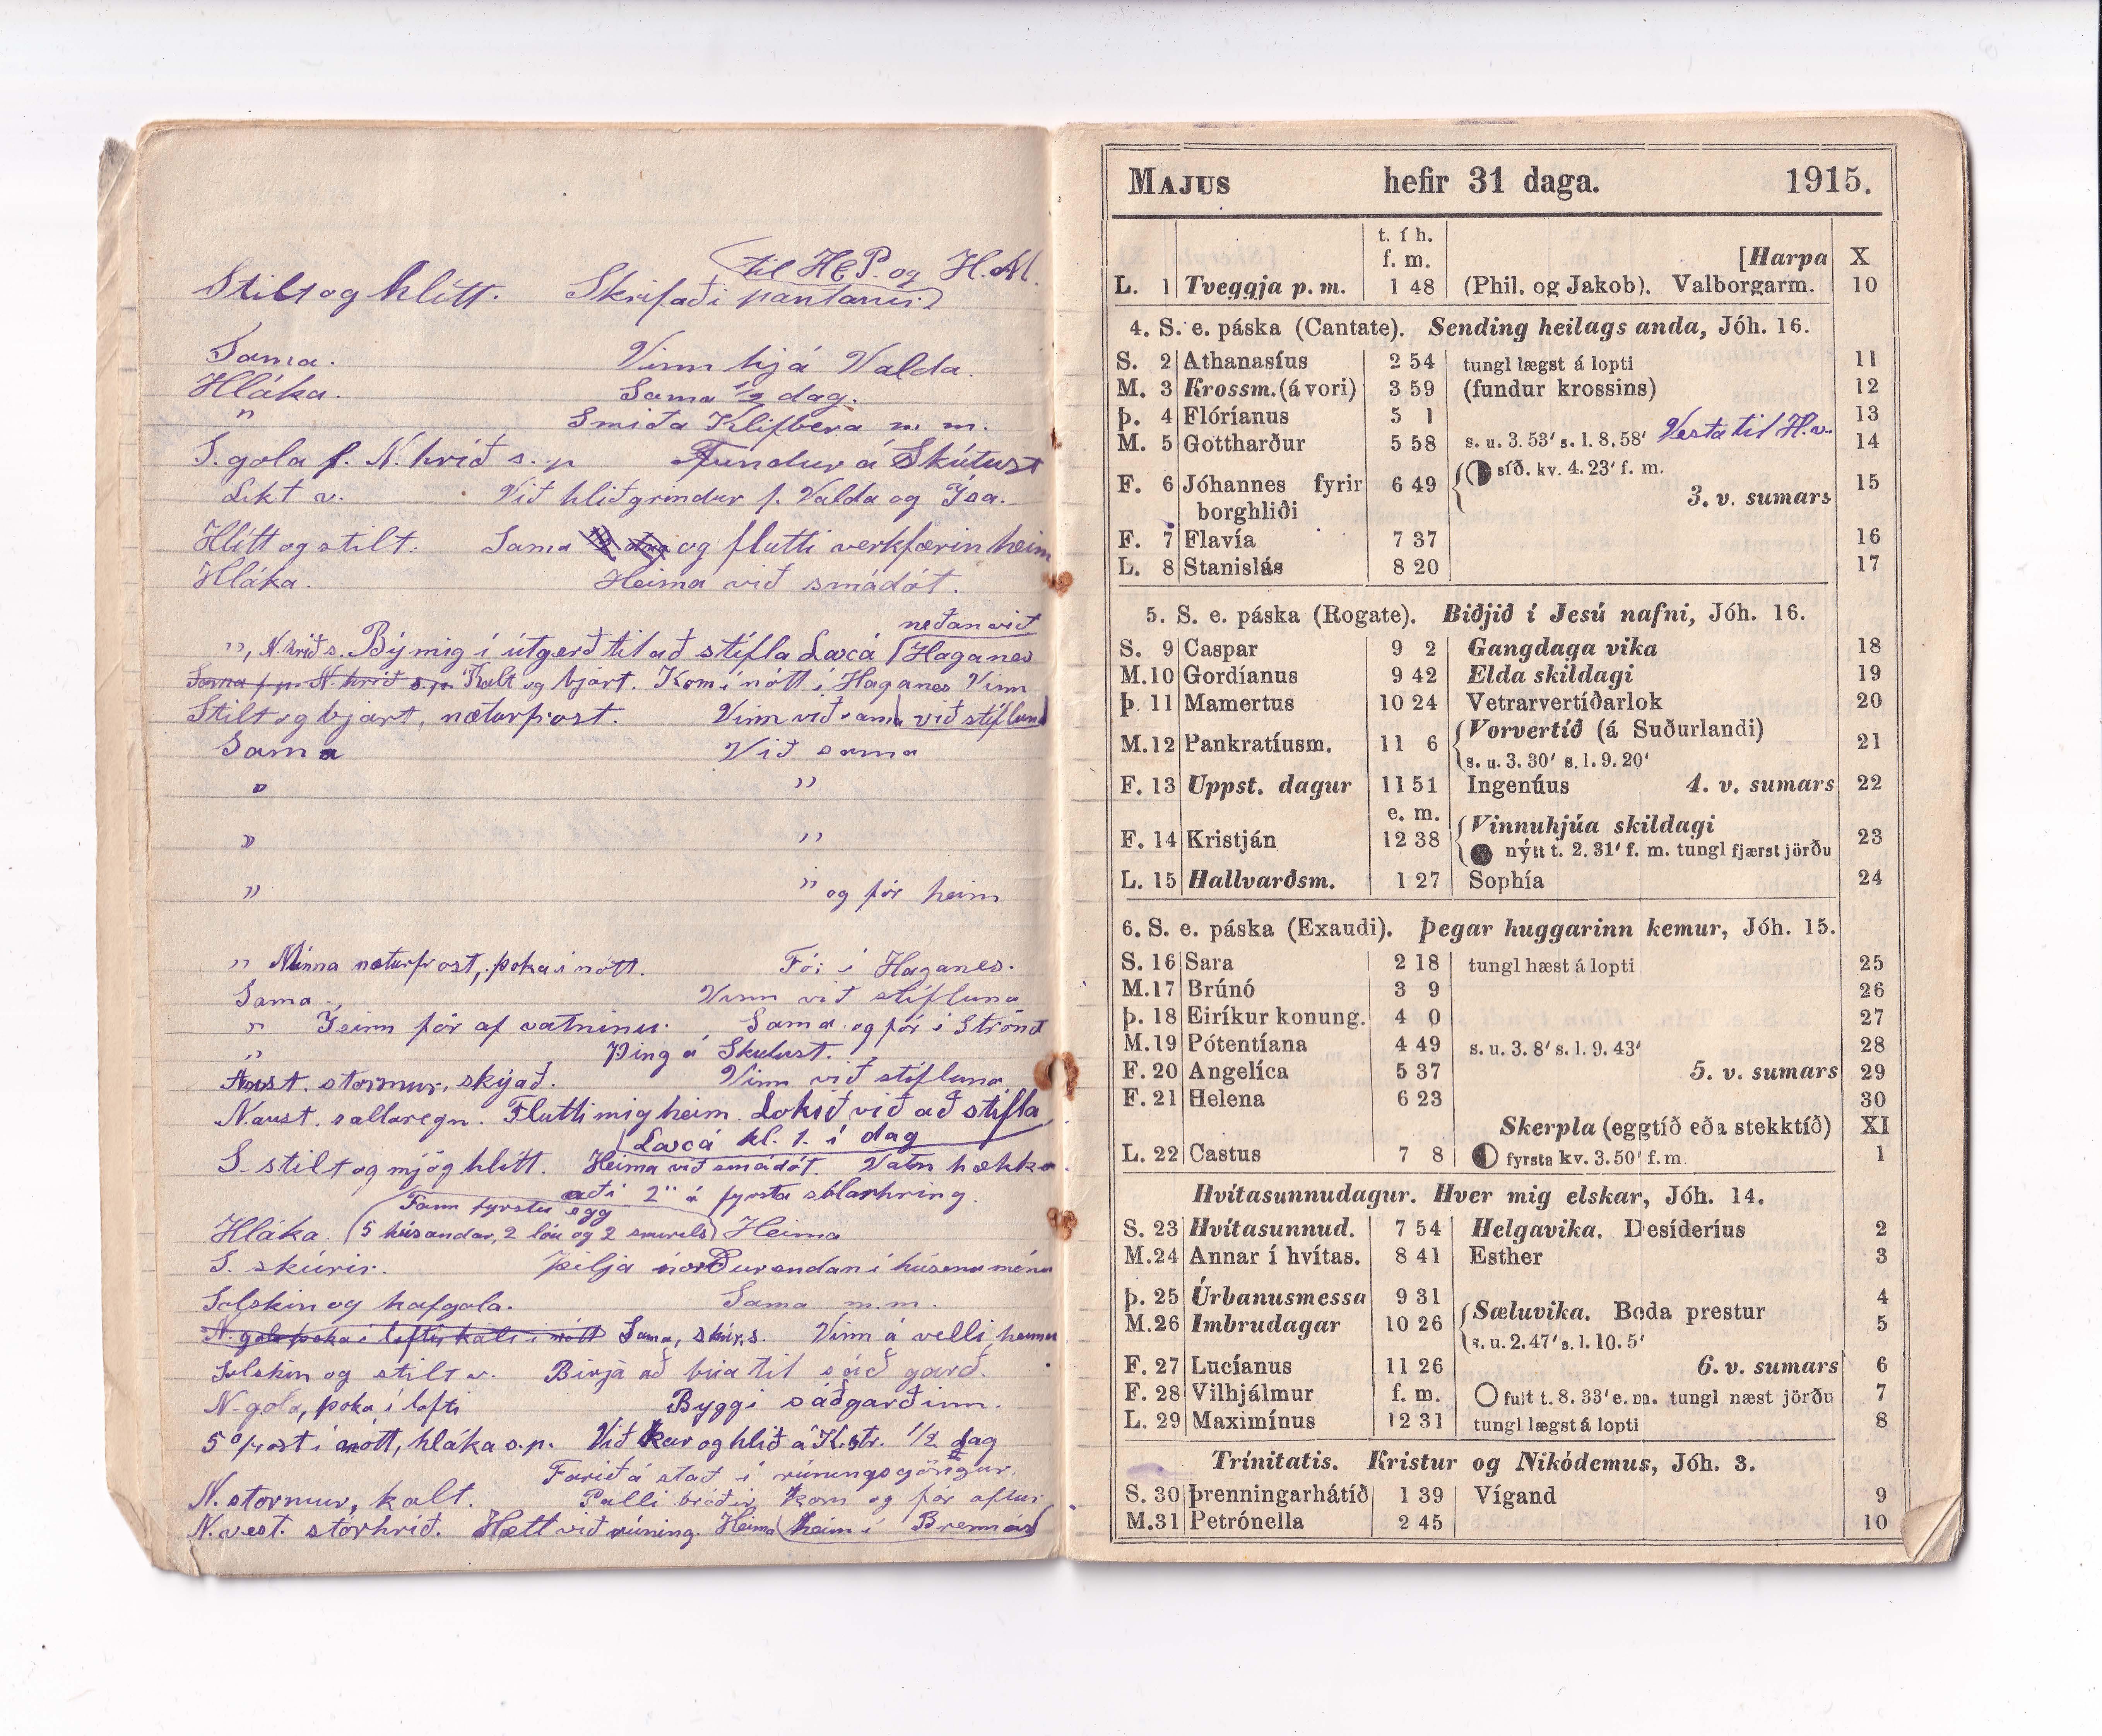 til H&P. og H.M.
Stilt og hlítt. Skrifaði pantanir
Sama. Vinn hjá Valda.
Hláka. Sama 1/2 dag.
" Smiða Klifbera m. m.
S. gola f. N. hríð s. p Fundur á Skútust
Likt v. Við hliðgrindur f. Valda og Ísa.
Hlítt og stilt. Sama og flutti verkfærin heim
Hláka. Heima við smádót.
neðan við
", N. hríð s. Bý mig í útgerð til að stífla Laxá Haganes
Sama f. p. N. hríð s.p. Kalt og bjart. Kom í nótt í Haganes Vinn
Stilt og bjart, næturfrost. Vinn við sama við stífluna
Sama Við sama
" "
" "
" " og fór heim
" Minna næturfrost, þoka í nótt. Fór í Haganes.
Sama. Vinn við stífluna
" Ísinn fór af vatninu. Sama og fór í Strönd
" Þing á Skútust.
Aust. stormur, skýað. Vinn við stífluna
N.aust. sallaregn. Flutti mig heim. Lokið við að stífla
Laxá kl. 1. í dag
S. stilt og mjög hlítt. Heima við smádót. Vatn hækk
aði 2" á fyrsta sólarhring.
Fann fyrstu egg
Hláka. (5 húsandar, 2 lóu og 2 smirils) Heima
S. skúrir. Þilja norðurendan í húsinu mínu
Solskin og hafgola. Sama m.m.
N. gola þoka í lofti, kalt í nótt Sama, skúr s. Vinn á velli, heima
Solskin og stilt v. Birja að búa til sáð garð.
N-gola, þoka í lofti Byggi sáðgarðinn.
5° frost í nótt, hláka s.p. Við kar og hlið á K.str. 1/2 dag
Farið á stað í rúningsgöngur.
N. stormur, kalt. Palli bróðir kom og fór aftur
N.vest. stórhríð. Hætt við rúning. Heima heim í Brennás
MAJUS hefir 31 daga. 1915.
t. í h.
f. m. [Harpa X
L. 1 Tveggja p. m. 1 48 (Phil. og Jakob). Valborgarm. 10
4. S. e. páska (Cantate). Sending heilags anda, Jóh. 16.
S. 2 Athanasíus 2 54 tungl lægst á lopti 11
M. 3 Krossm. (á vori) 3 59 (fundur krossins) 12
Þ. 4 Flóríanus 5 1 13
Vesta til H.v.
M. 5 Gottharður 5 58 s. u. 3.53′ s. l. 8.58′ 14
F. 6 Jóhannes fyrir 6 49 síð. kv. 4. 23′ f. m. 15
borghliði 3. v. sumars
F. 7 Flavía 7 37 16
L. 8 Stanislás 8 20 17
5. S. e. páska (Rogate). Biðjið í Jesú nafni, Jóh. 16.
S. 9 Caspar 9 2 Gangdaga vika 18
M. 10 Gordíanus 9 42 Elda skildagi 19
Þ. 11 Mamertus 10 24 Vetrarvertíðarlok 20
Vorvertíð (á Suðurlandi)
M. 12 Pankratíusm. 11 6 21
s. u. 3. 30′ s. l. 9. 20′
F. 13 Uppst. dagur 11 51 Ingenúus 4. v. sumars 22
e. m.
Vinnuhjúa skildagi
F. 14 Kristján 12 38 23
nýtt t. 2. 31′ f. m. tungl fjærst jörðu
L. 15 Hallvarðsm. 1 27 Sophía 24
6. S. e. páska (Exaudi). Þegar huggarinn kemur, Jóh. 15.
S. 16 Sara 2 18 tungl hæst á lopti 25
M. 17 Brúnó 3 9 26
Þ. 18 Eiríkur konung. 4 0 27
M. 19 Pótentíana 4 49 s. u. 3. 8′ s. l. 9. 43′ 28
F. 20 Angelíca 5 37 5. v. sumars 29
F. 21 Helena 6 23 30
Skerpla (eggtíð eða stekktíð) XI
L. 22 Castus 7 8 fyrsta kv. 3. 50′ f. m. 1
Hvítasunnudagur. Hver mig elskar, Jóh. 14.
S. 23 Hvítasunnud. 7 54 Helgavika. Desíderíus 2
M. 24 Annar í hvítas. 8 41 Esther 3
Þ. 25 Úrbanusmessa 9 31 4
Sæluvika. Beda prestur
M. 26 Imbrudagar 10 26 5
s. u. 2. 47′ s. l. 10. 5′
F. 27 Lucíanus 11 26 6. v. sumars 6
F. 28 Vilhjálmur f. m. fult t. 8. 33′ e. m. tungl næst jörðu 7
L. 29 Maximínus 12 31 tungl lægst á lopti 8
Trínitatis. Kristur og Nikódemus, Jóh. 3.
S. 30 Þrenningarhátíð 1 39 Vígand 9
M. 31 Petrónella 2 45 10